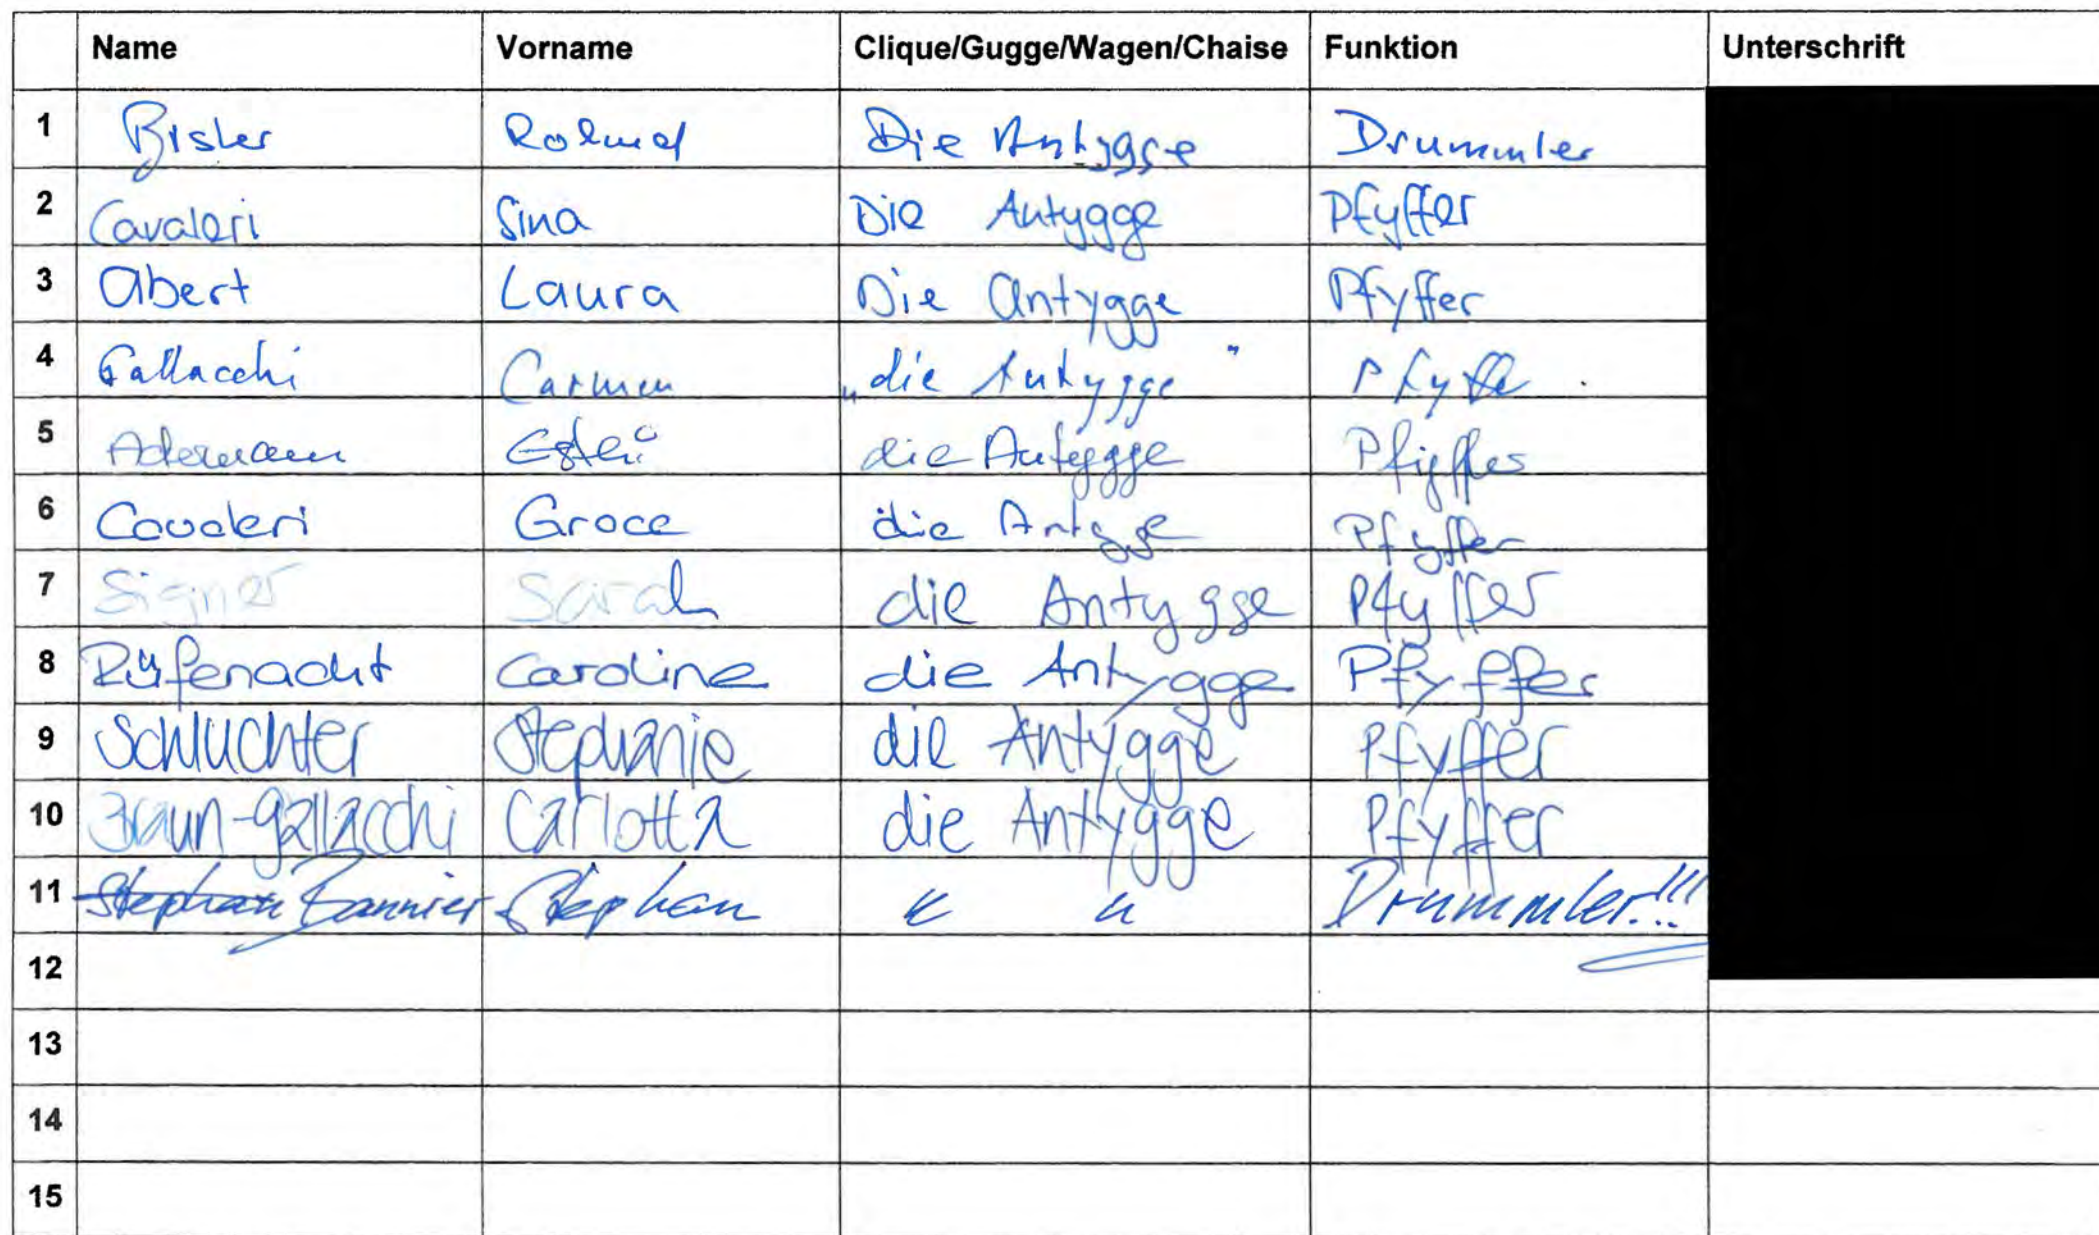 Name Vorname Clique/Gugge/Wagen/Chaise Funktion Unterschrift
1 Bisler Roland Die Antygge Drummler
2 Cavaleri Sina Die Antygge Pfyffer
3 Abert Laura Die Antygge Pfyffer
4 Gallacchi Carmen „die Antygge" Pfyffe
5 die Antygge Pfyffer
6 Cavaleri Grace die Antygge Pfyffer
7 Signer Sarah die Antygge Pfyffer
8 Rüfenacht Caroline die Antygge Pfyffer
9 Schluchter Stephanie die Antygge Pfyffer
10 Braun-gallacchi Carlotta die Antygge Pfyffer
11 Stephan Bannier Stephan " " Drummler!!!
12
13
14
15